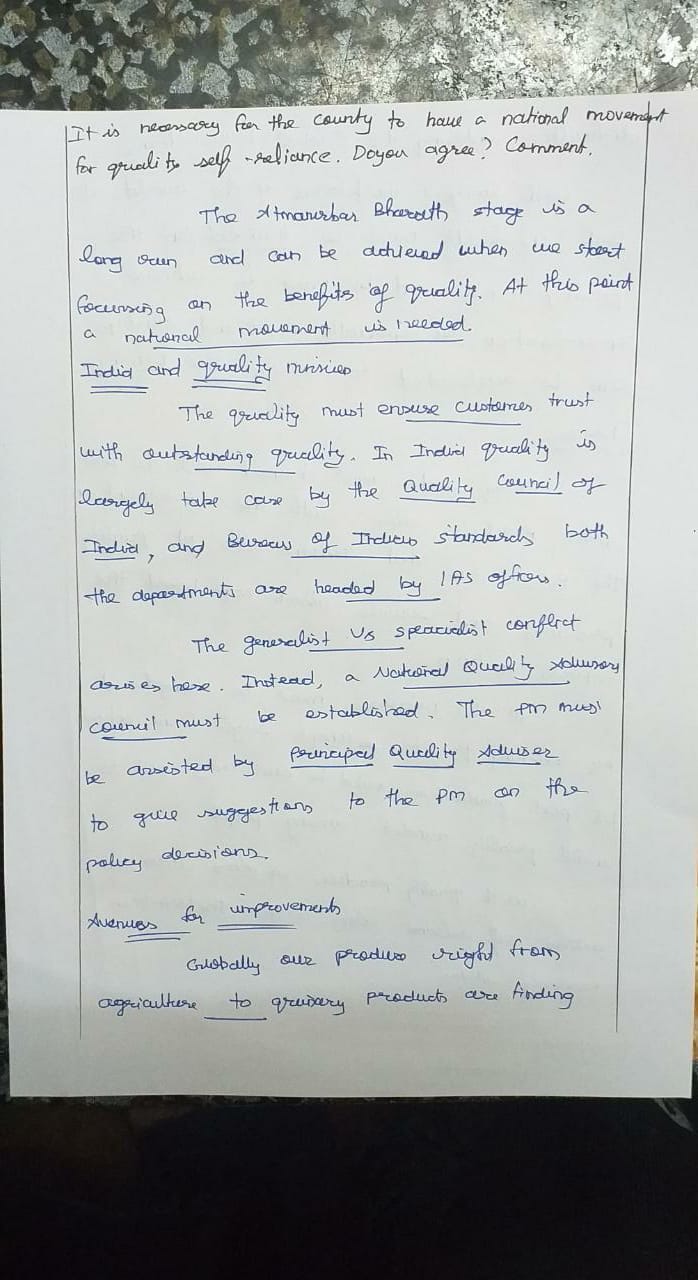 It is necessary for the county to have a national movement
for quality self-reliance. Do you agree? Comment.
The Atmanirbar Bharath stage is a
long run and can be achieved when we start
focussing on the benefits of quality. At this point
a national movement is needed.
India and quality
The quality must ensure customers trust
with outstanding quality. In India quality is
largely take care by the Quality Council of
India, and Bureau of Indian standards both
the departments are headed by IAS officers.
The generalist Vs speacialist conflict
arises here. Instead, a National Quality Advisory
council must be established. The PM must
be assisted by Principal Quality Adviser
to give suggestions to the PM on the
policy decisions.
Avenues for improvements
Globally our produce right from
agriculture to products are finding